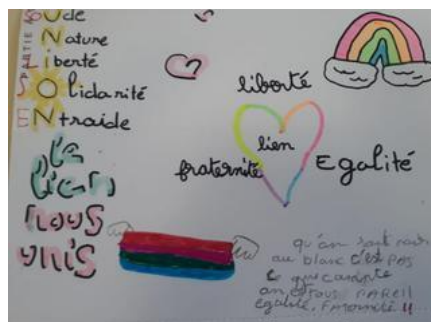 Nature
Liberté
Solidarité
Entraide
le
lien
nous
unis
liberté
lien
fraternité
Egalité
qu'on soit noir
au blanc c'est PAS
ce qui compte
on est tous PAREIL
égalité, Fraternité